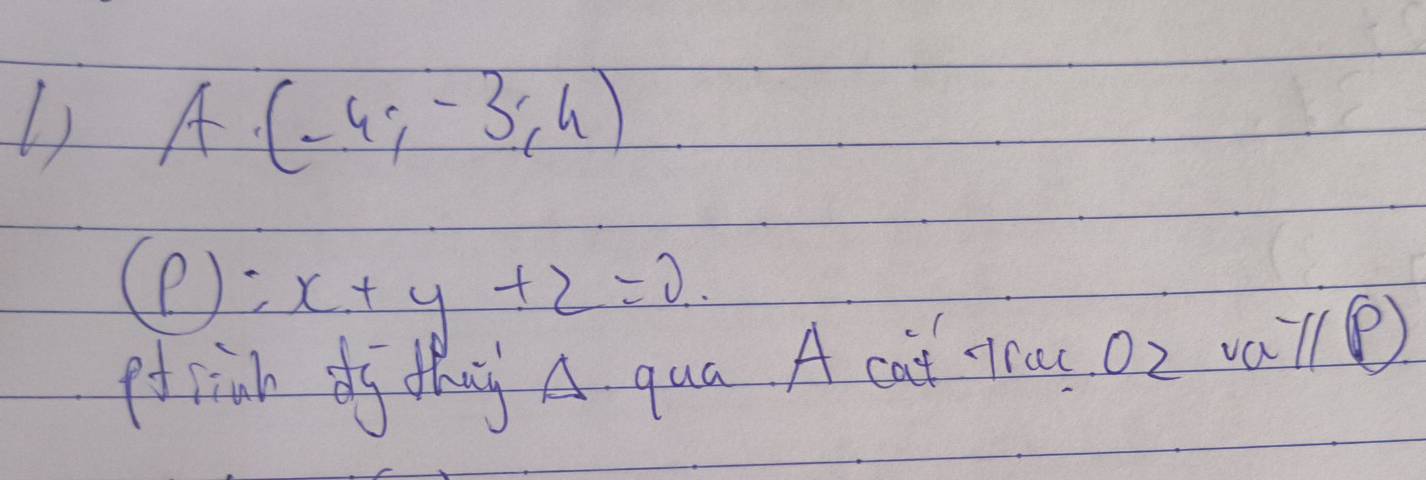 1) A (-4; -3; 4)
(P): x + y + z = 0.
ptrình đg thẳg Δ qua A cắt trục Oz và // (P)